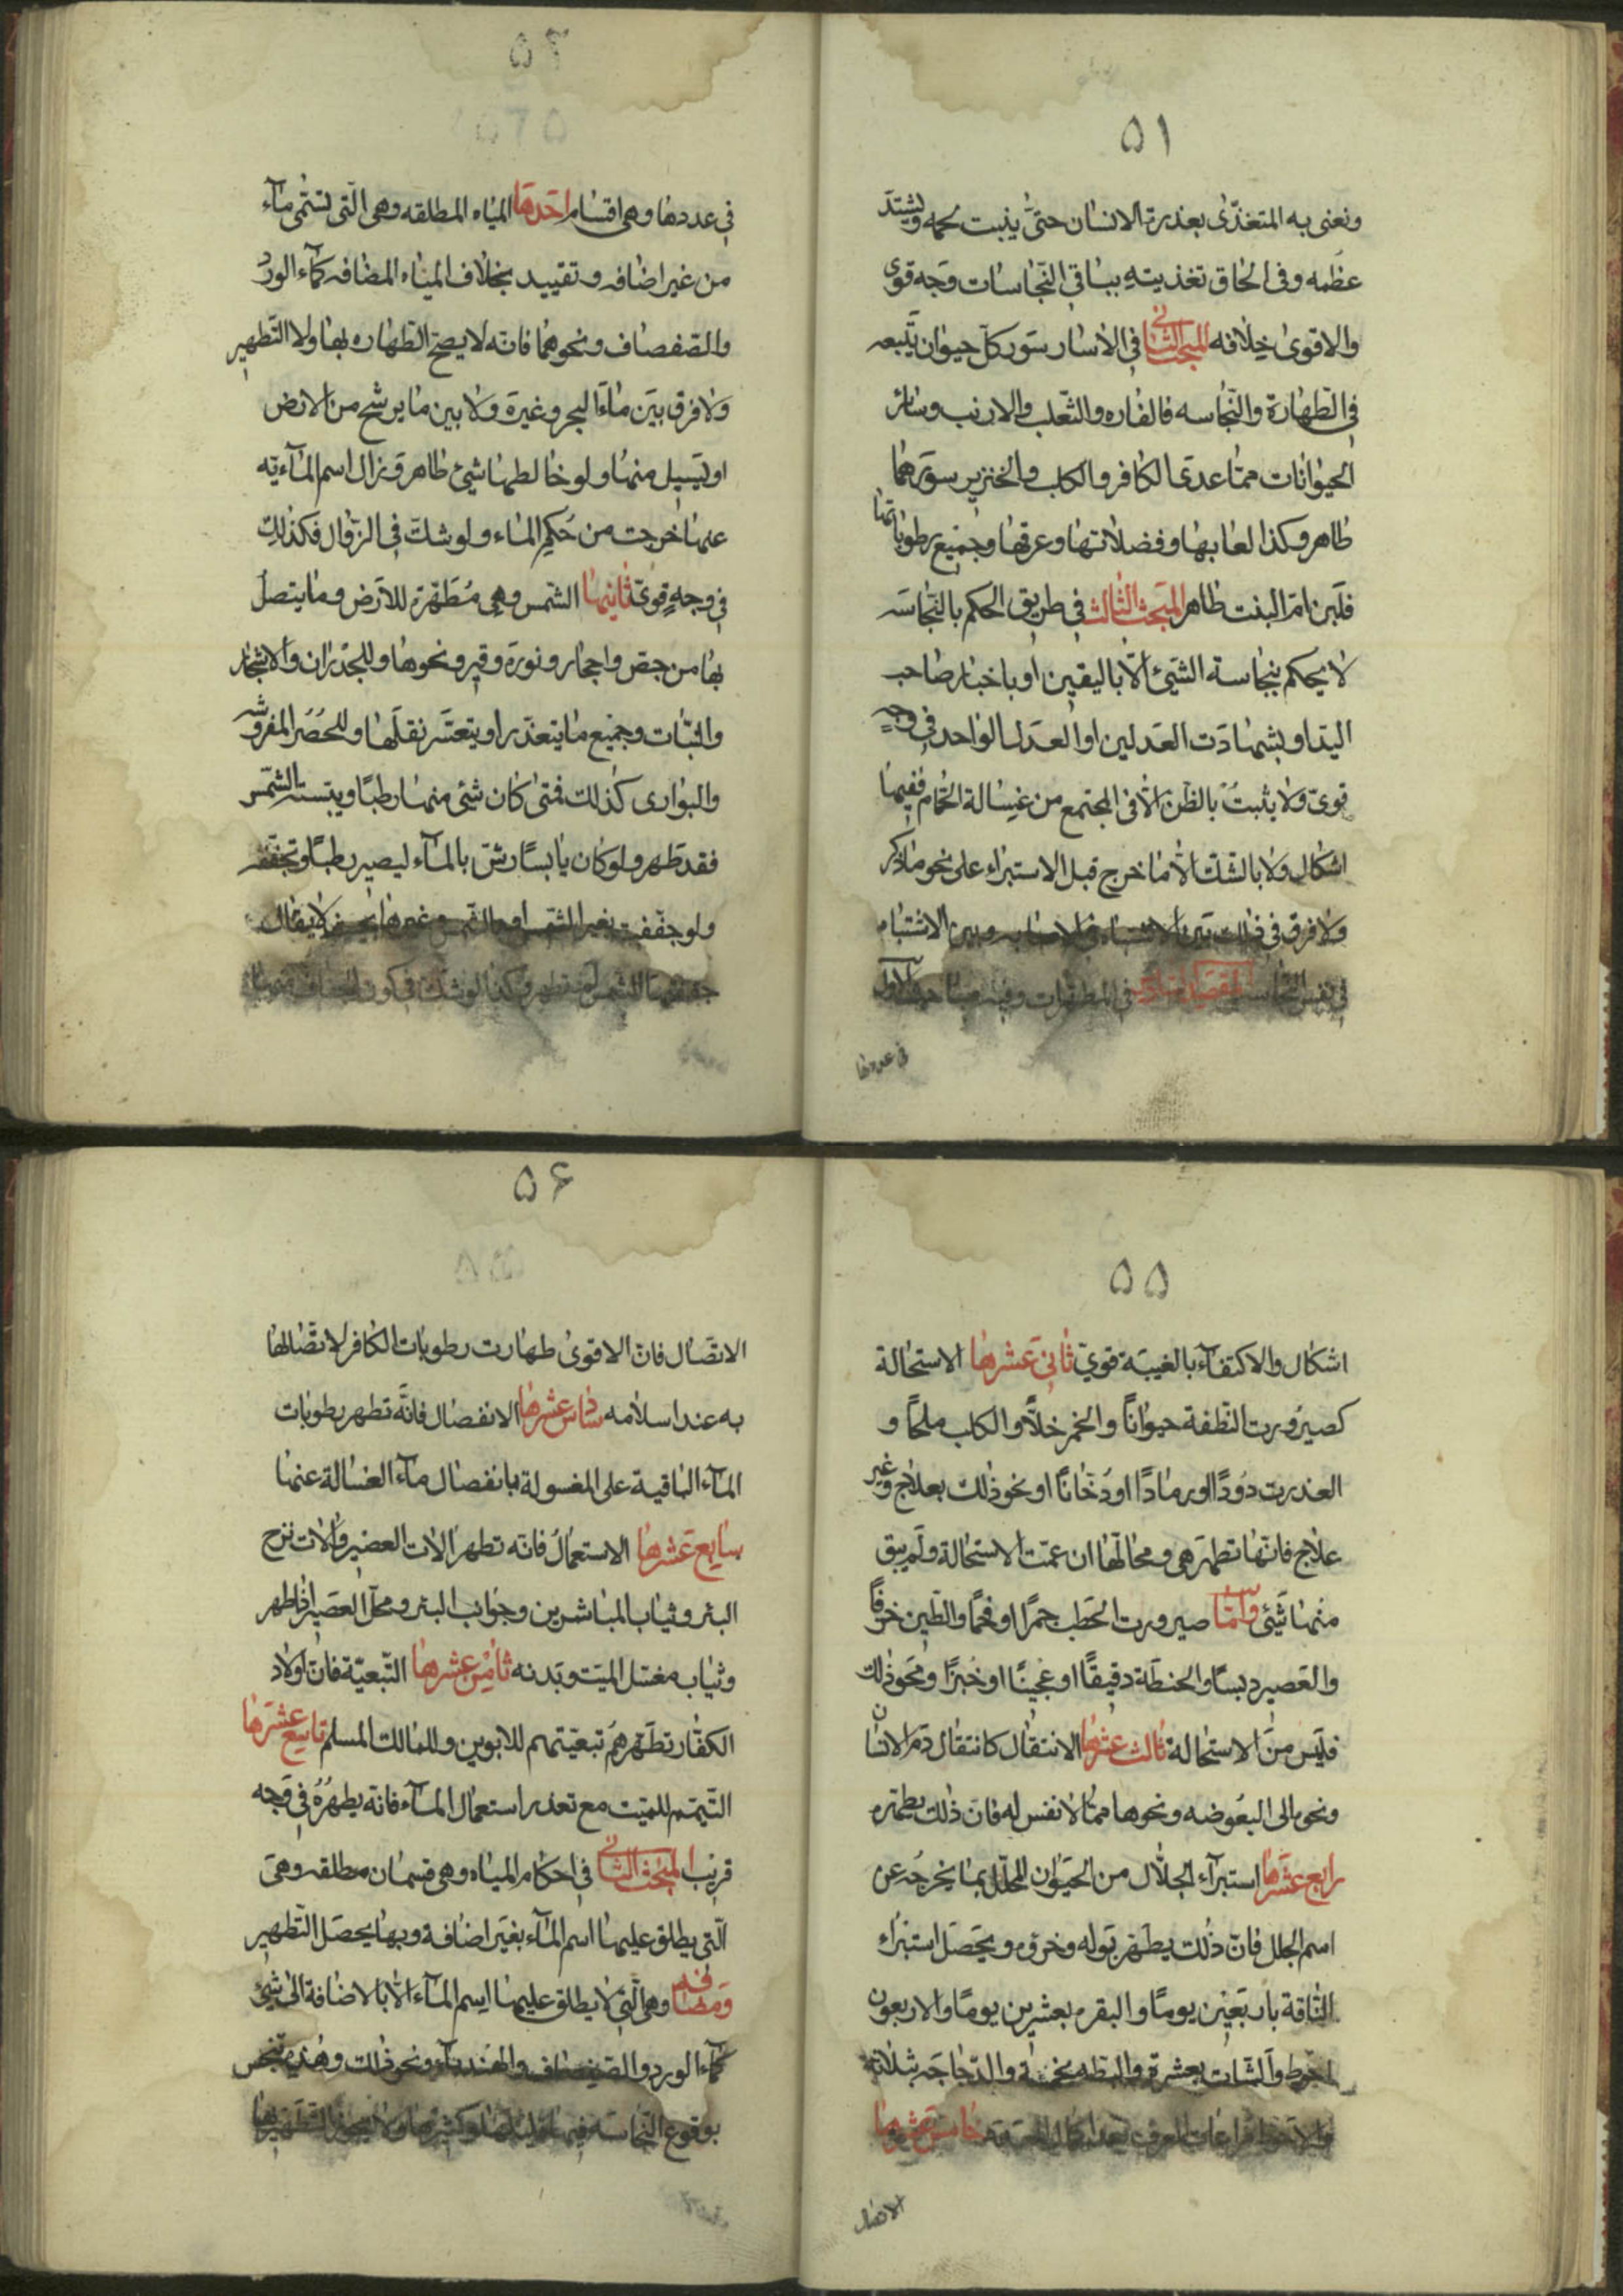 ۵۱
ونعنى به المتغذّى بعذرة الانسان حتّى ينبت لحمه ويشتدّ
عظمه وفى الحاق تغذيته بباقى النّجاسات وجه قوى
والاقوى خلافه المبحث الثانى فى الأسار سور كلّ حيوان يتّبعه
فى الطّهارة والنّجاسه فالفاره والثّعلب والارنب وسائر
الحيوانات ممّا عدى الكافر والكلب والخنزير سورها
طاهر وكذا لعابها وفضلاتها وعرقها وجميع رطوباتها
فلبن امّ البنت طاهر المبحث الثّالث فى طريق الحكم بالنّجاسه
لا يحكم بنجاسة الشّيئ الّا باليقين او باخبار صاحب
اليد او بشهادت العدلين او العدل الواحد فى وجهٍ
قوىّ ولا يثبت بالظّن الّا فى المجتمع من غسالة الحمّام ففيها
اشكال ولا بالشّك الّا ما خرج قبل الاستبراء على نحو ما ذكر
ولا فرق فى ذلك بين الاشتباه فى الاصابه وبين الاشتباه
فى نفس النّجاسة المقصد فى المطهّرات وفيه مباحث الاوّل
فى عددها
۵۲
فى عددها وهى اقسام احدها المياه المطلقه وهى الّتى تسمّى مآء
من غير اضافه وتقييد بخلاف المياه المضافه كمآء الورد
والصّفصاف ونحوهما فانّه لا يصحّ الطّهاره بها ولا التّطهير
ولا فرق بين مآء البحر وغيره ولا بين ما يرشح من الارض
او يسيل منها ولو خالطها شيئ طاهر وزال اسم المآءيّه
عنها خرجت من حكم المآء ولو شكّ فى الزّوال فكذلك
فى وجهٍ قوىّ ثانيها الشّمس وهى مُطهّرة للارض وما يتصل
بها من جصّ واحجار ونورة وقير ونحوها وللجدران والاشجار
والنّبات وجميع ما يتعذّر او يتعسّر نقلها وللحُصُر المفروشه
والبوارى كذلك فمتى كان شئ منها رطبًا ويبسته الشّمس
فقد طهر ولو كان يابسًا رشّ بالمآء ليصير رطبًا وتجفّفه
ولو جفّفت بغير الشّمس او بالشّمس وغيرها بحيث لا يقال
جفّفتها الشّمس لم تطهر وكذا لو شكّ فى كون
۵۵
اشكال والاكتفآء بالغيبة قوىّ ثانى عشرها الاستحالة
كصيرورت النّطفة حيوانًا والخمر خلًّا والكلب ملحًا و
العذرت دودًا او رمادًا او دُخانًا او نحو ذلك بعلاج وغير
علاج فانّها تطهر هى ومحالّها ان عمّت الاستحالة ولم يبق
منها شيئ وامّا صيرورت الحطب جمرًا او فحمًا والطّين خزفًا
والعصير دبسًا والحنطة دقيقًا او عجينًا او خبزًا ونحو ذلك
فليس من الاستحالة ثالث عشرها الانتقال كانتقال دم الانسان
ونحوه الى البعوضه ونحوها ممّا لا نفس له فانّ ذلك يطهّره
رابع عشرها استبرآء الجلّال من الحيوان المحلّل بما يخرجه عن
اسم الجلل فانّ ذلك يطهّر بوله وخرؤه ويحصل استبراء
النّاقة باربعين يومًا والبقره بعشرين يومًا والاربعون
احوط والشّات بعشرة والبطّه بخمسة والدّجاجه بثلاثة
والاحوط مراعات العرف بعد اكمال خامس عشرها
الاتصال
۵۶
الاتّصال فانّ الاقوى طهارت رطوبات الكافر لاتّصالها
به عند اسلامه سادس عشرها الانفصال فانّه تطهر رطوبات
المآء الباقية على المغسولة بانفصال مآء الغسالة عنها
سابع عشرها الاستعمال فانّه تطهر الات العصير والات نزح
البئر وثياب المباشرين وجوانب البئر ومحلّ العصير اذا طهر
وثياب مغسل الميّت وبدنه ثامن عشرها التّبعيّة فانّ اولاد
الكفّار تطهّرهم تبعيّتهم للابوين وللمالك المسلم تاسع عشرها
التيمّم للميّت مع تعذر استعمال المآء فانه يطهّره فى وجه
قريب المبحث الثانى فى احكام المياه وهى قسمان مطلقه وهى
الّتى يطلق عليها اسم المآء بغير اضافة وبها يحصل التّطهير
ومضافه وهى الّتى لا يطلق عليها اسم المآء الّا بالاضافة الى شيئ
كمآء الورد والصّفصاف والهندباء ونحو ذلك وهذه تنجس
بوقوع النّجاسه فيها قليلها وكثيرها ولا يجوز التّطهير بها